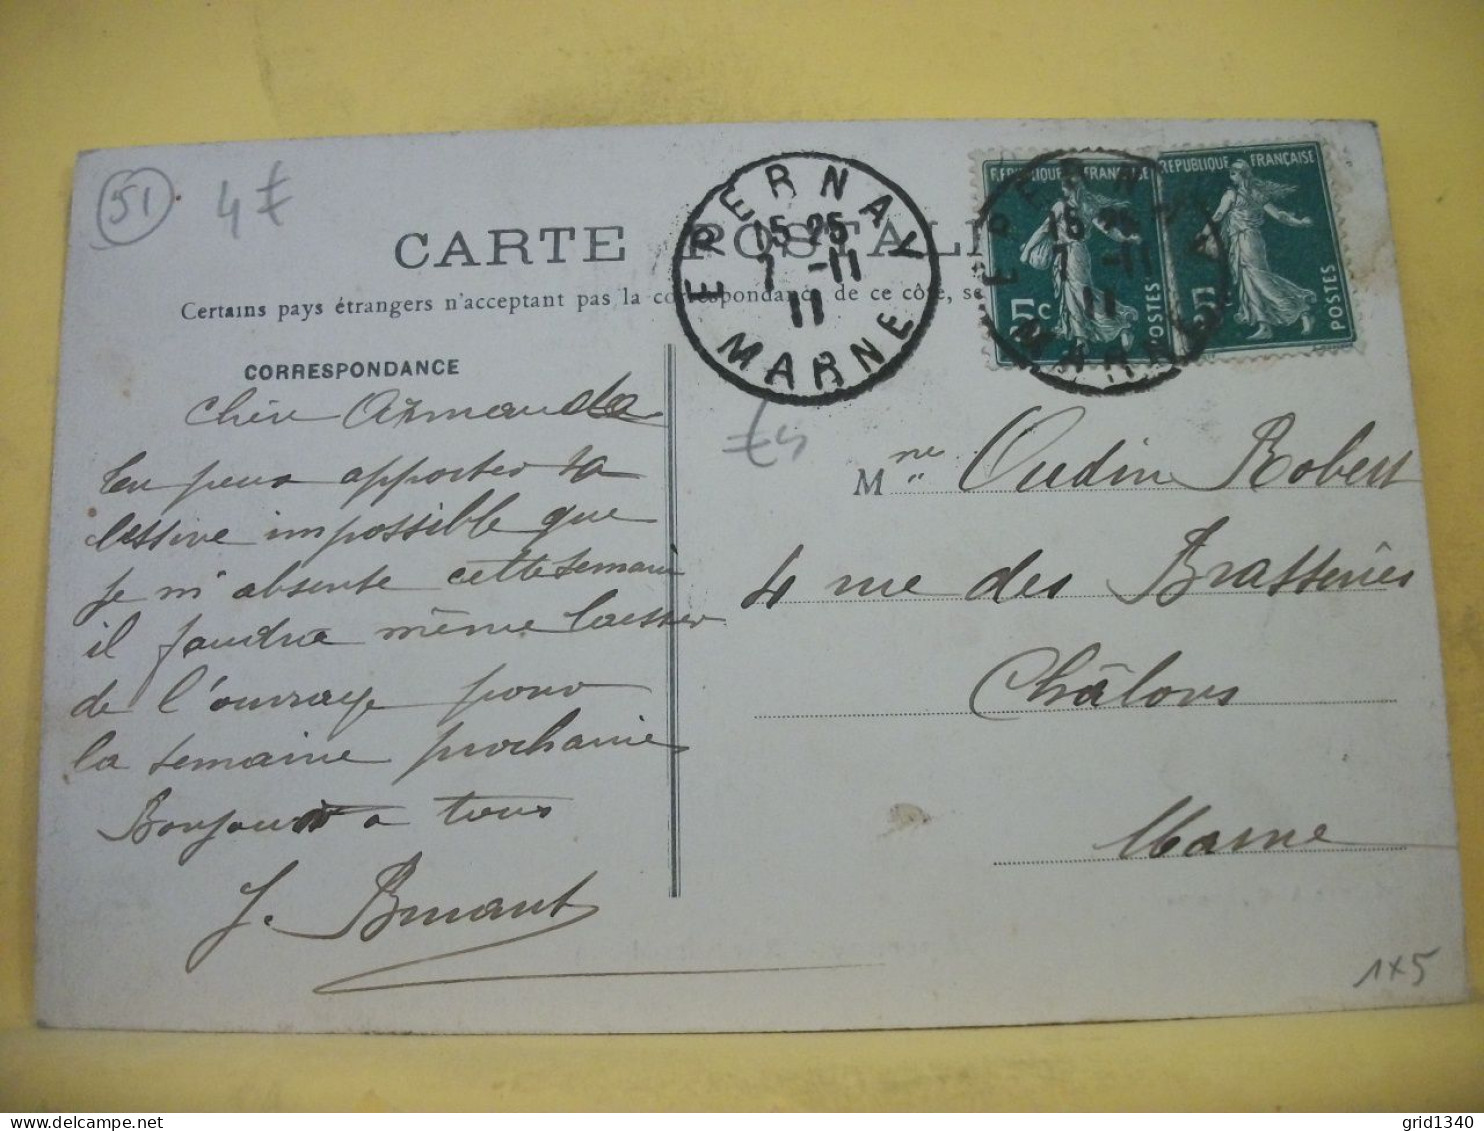 51
4 €
CARTE POSTALE
Certains pays étrangers n'acceptent pas la correspondance de ce côté, se
CORRESPONDANCE
EPERNAY
15 25
7 -11
11
MARNE
REPUBLIQUE FRANÇAISE
5c
POSTES
REPUBLIQUE FRANÇAISE
POSTES
EPERNAY
15 25
7 -11
11
MARNE
Chère Armande
Tu peux apporter ta
lessive impossible que
je m'absente cette semaine
il faudra même laisser
de l'ouvrage pour
la semaine prochaine
Bonjour a tous
J.
Mme Oudin Robert
4 rue des Brasseries
Châlons
Marne
1x5
grid1340